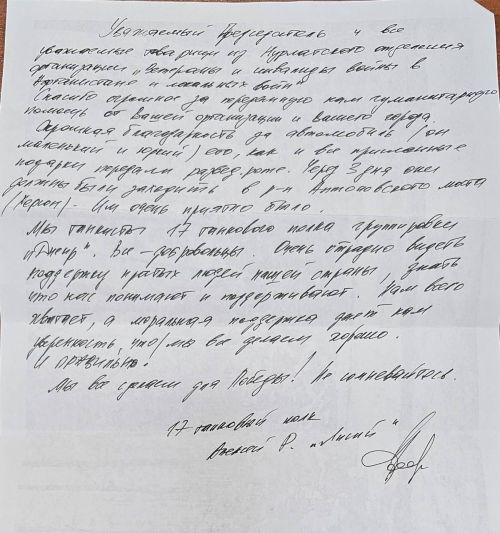 Уважаемый Председатель и все
уважаемые товарищи из Нурлатского отделения
организации „Ветераны и инвалиды войны в
Афганистане и локальных войн"
Спасибо огромное за переданную нам гуманитарную
помощь от Вашей организации и вашего города.
Огромная благодарность за автомобиль (он
маленький и юркий) его, как и все присланные
подарки передали развед.роте. Через 3 дня они
должны были заходить в р-н Антоновского моста
(Херсон) - Им очень приятно было.
Мы танкисты 17 танкового полка группировки
„Днепр". Все - добровольцы. Очень отрадно видеть
поддержку простых людей нашей страны, знать
что нас понимают и поддерживают. Нам всего
хватает, а моральная поддержка дает нам
уверенность, что мы все делаем хорошо.
И правильно!
Мы все сделаем для Победы! Не сомневайтесь.
17 танковый полк
Алексей Р. „Лисий"